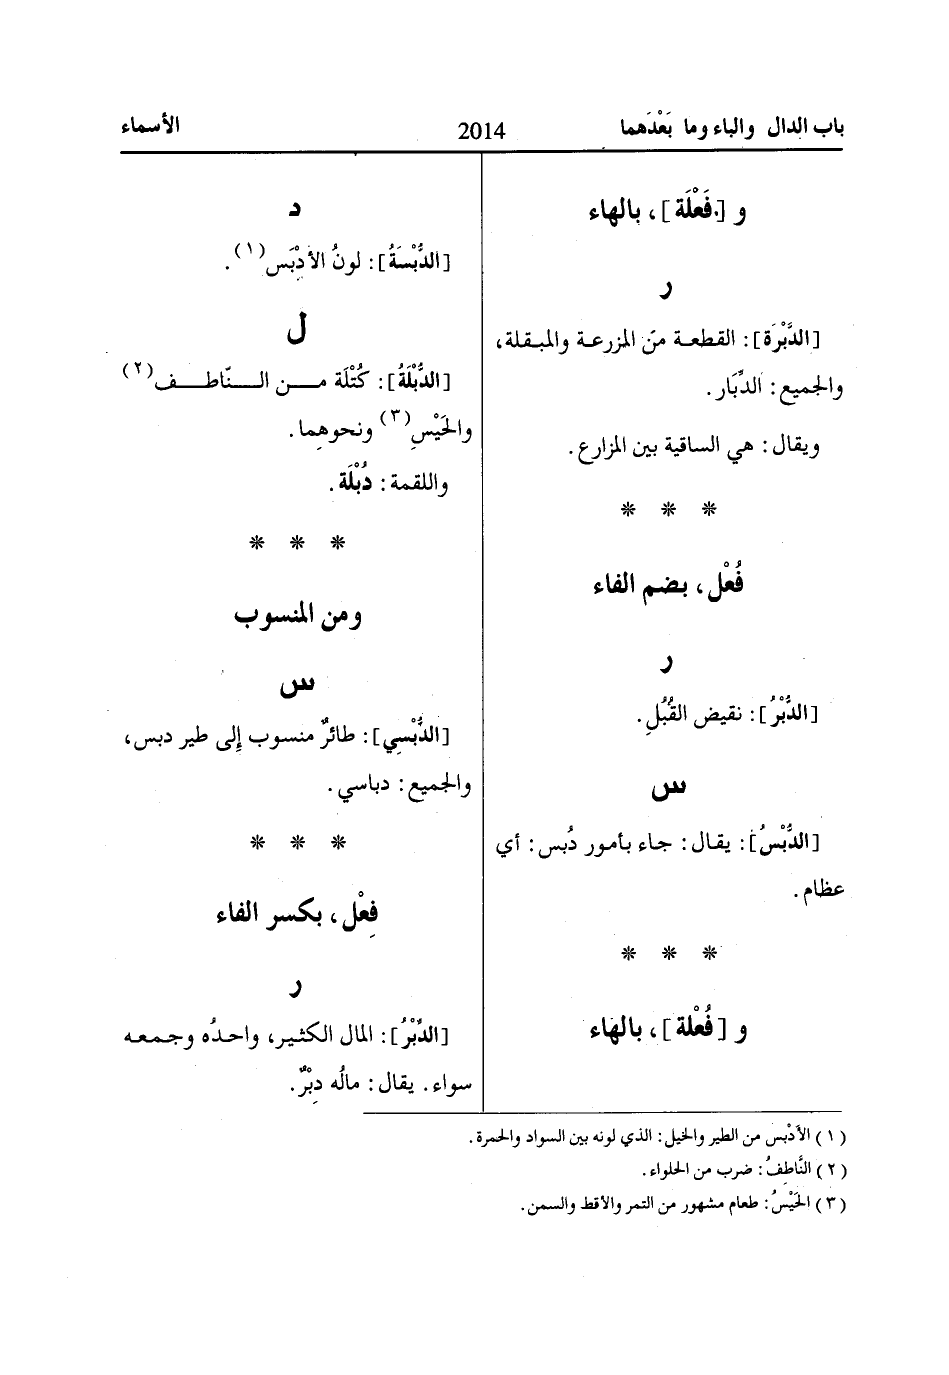 باب الدال والباء وما بَعْدَهما
2014
الأسماء
و [فَعْلَة]، بالهاء
ر
[الدَّبْرَة]: القطعة من المزرعة والمبقلة،
والجميع: الدِّبَار.
ويقال: هي الساقية بين المزارع.
* * *
فُعْل، بضم الفاء
ر
[الدُّبْرُ]: نقيض القُبُلِ.
س
[الدُّبْسُ]: يقال: جاء بأمور دُبس: أي
عظام.
* * *
و [فُعْلة]، بالهاء
د
[الدُّبْسَةُ]: لونُ الأدْبَسِ(١).
ل
[الدُّبْلَةُ]: كُتْلَة مـن الـنّاطـف(٢)
والحَيْسِ(٣) ونحوهِما.
واللقمة: دُبْلَة.
* * *
ومن المنسوب
س
[الدُّبْسِي]: طائرٌ منسوب إلى طير دبس،
والجميع: دباسي.
* * *
فِعْل، بكسر الفاء
ر
[الدِّبْرُ]: المال الكثير، واحدُه وجمعه
سواء. يقال: مالُه دِبْرٌ.
(١) الأَدْبس من الطير والخيل: الذي لونه بين السواد والحمرة.
(٢) النَّاطِفُ: ضرب من الحلواء.
(٣) الحَيْسُ: طعام مشهور من التمر والأقط والسمن.